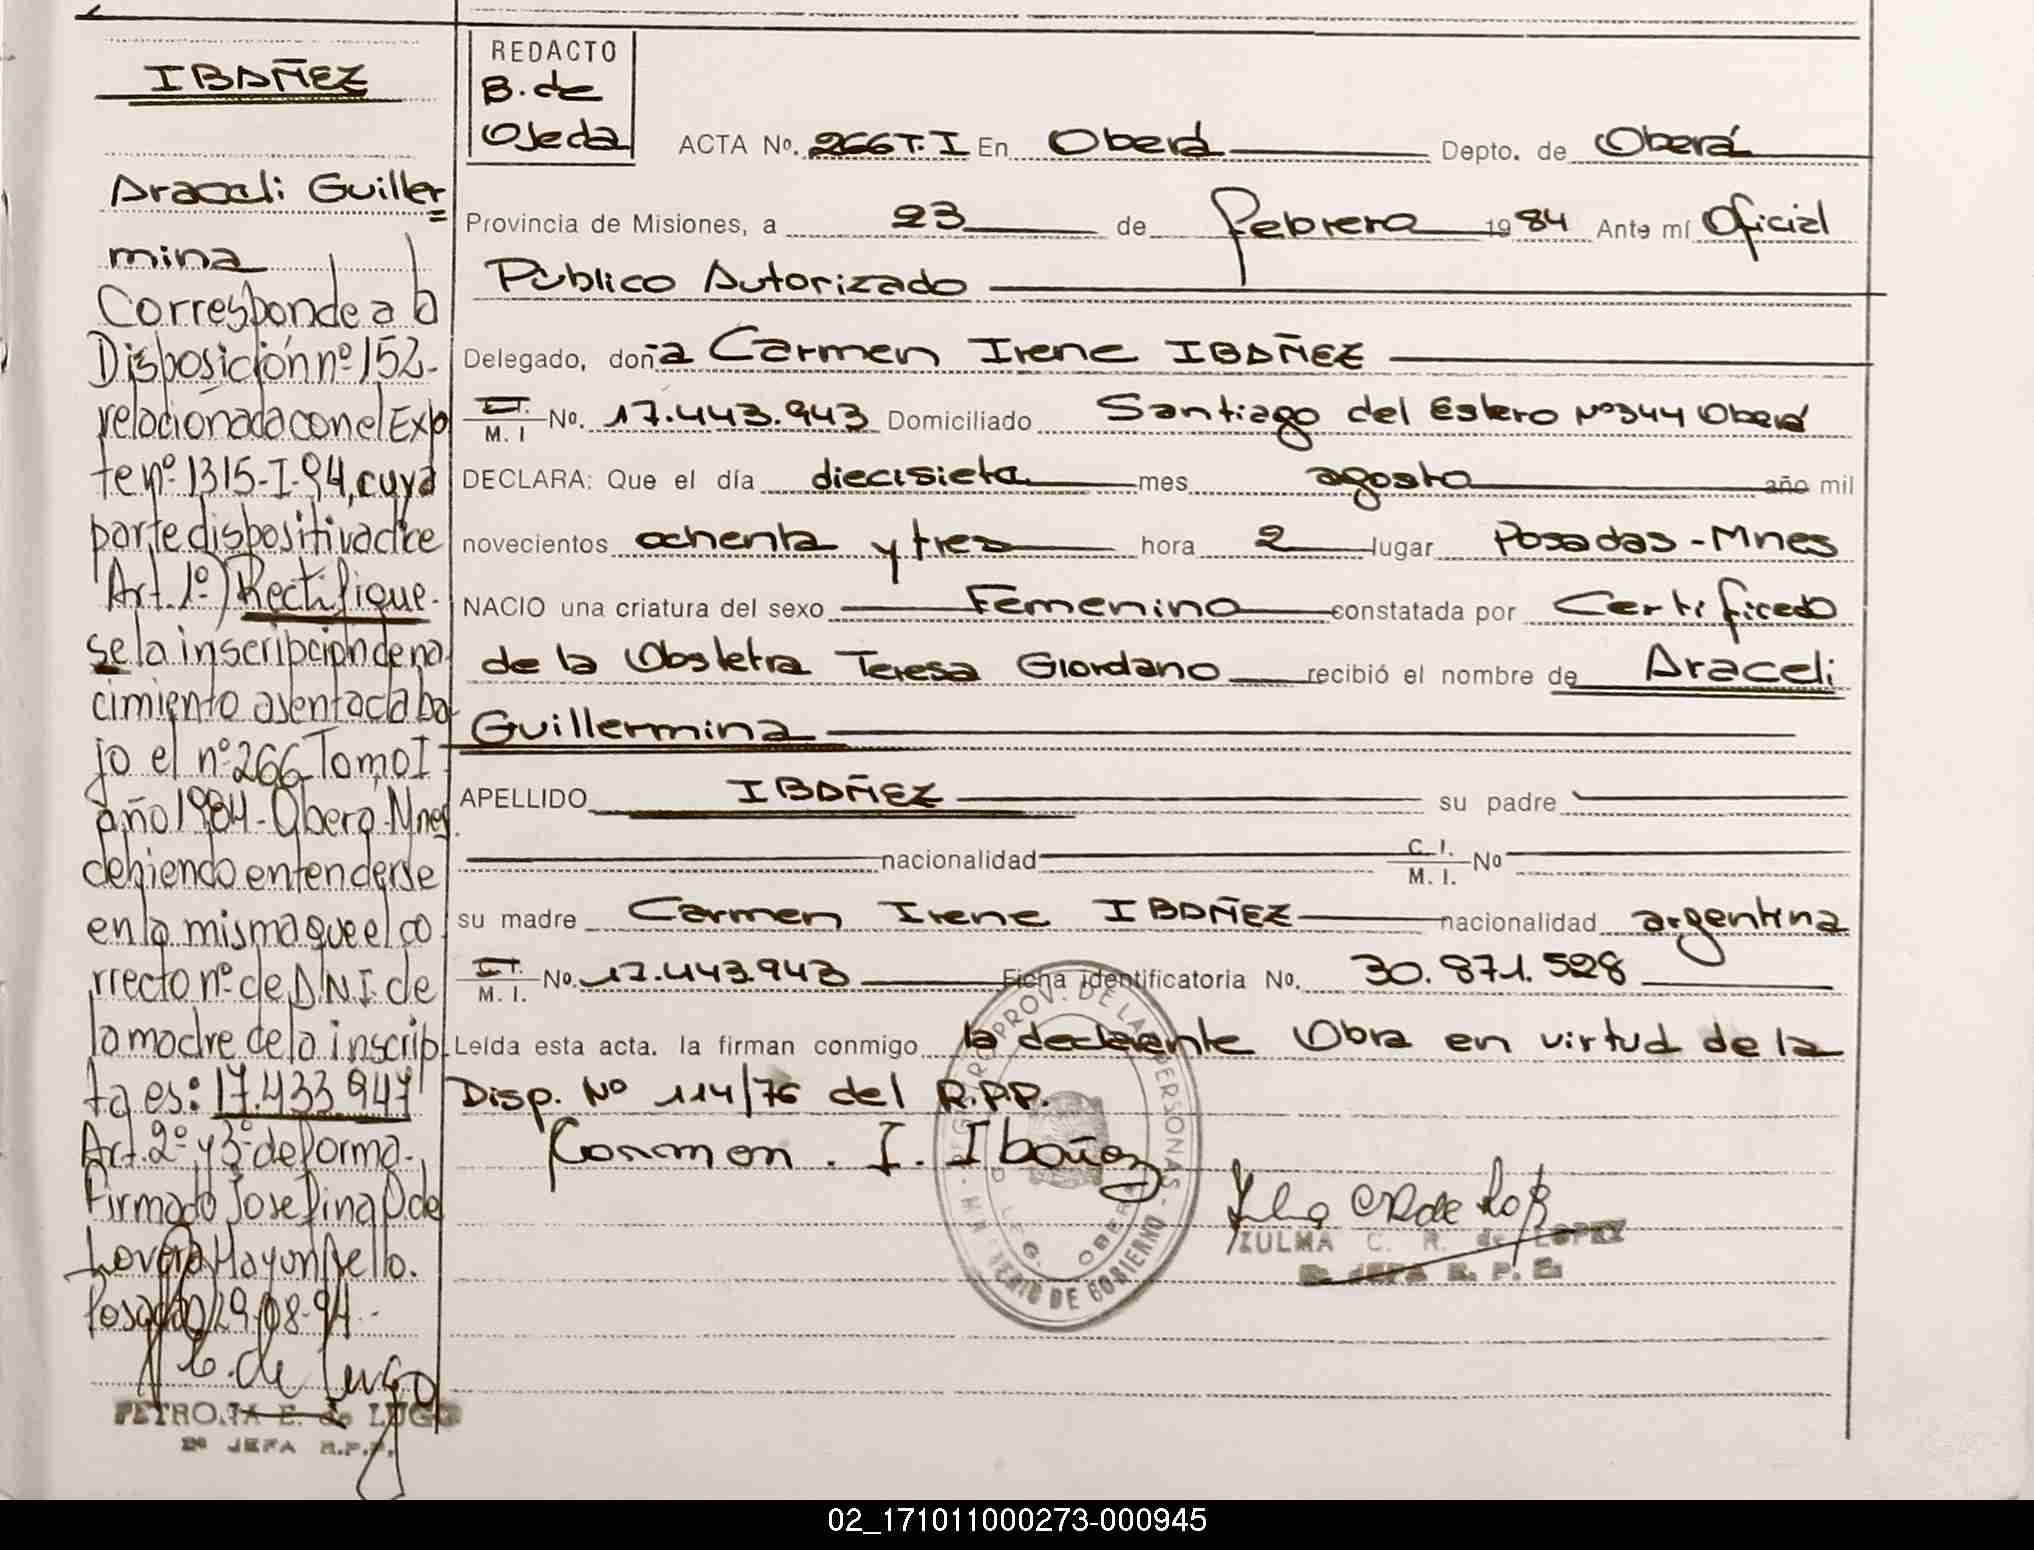 IBAÑEZ
Araceli Guiller=
mina
Corresponde a la
Disposición nº 152-
relacionada con el Exp
te nº 1315-I-94, cuya
parte dispositiva dice
Art. 1º) Rectifique-
se la inscripción de na
cimiento asentada ba-
jo el nº 266 Tomo I
año 1984- Oberá-Mnes.
debiendo entenderse
en la misma que el co
rrecto nº de DNI de
la madre de la inscrip
ta es: 17.433.947
Art. 2º y 3º de forma-
Firmado Josefina D. de
Lovera
Posadas 29-08-94-
E. de Lugo
PETRONA E. de LUGO
2º JEFA R.P.P.
REDACTO
B. de
Ojeda
ACTA No. 266 T. I En Oberá Depto. de Oberá
Provincia de Misiones, a 23 de febrero 1984 Ante mí Oficial
Público Autorizado
Delegado, doña Carmen Irene IBAÑEZ
M. I No. 17.443.943 Domiciliado Santiago del Estero Nº 344 Oberá
DECLARA: Que el día diecisiete mes agosto año mil
novecientos ochenta y tres hora 2 lugar Posadas - Mnes
NACIO una criatura del sexo Femenino constatada por Certificado
de la Obstetra Teresa Giordano recibió el nombre de Araceli
Guillermina
APELLIDO IBAÑEZ su padre
nacionalidad C. I. M. I. No
su madre Carmen Irene IBAÑEZ nacionalidad argentina
M. I. No. 17.443.943 Ficha identificatoria No. 30.871.528
Leída esta acta. la firman conmigo la declarante Obra en virtud de la
Disp. Nº 114/76 del R.P.P.
Carmen . I. Ibañez
REGISTRO PROV. DE LAS PERSONAS - MINISTERIO DE GOBIERNO -
DELEG. OBERA
ZULMA C. R. de LOPEZ
2º JEFA R. P. P.
02_171011000273-000945